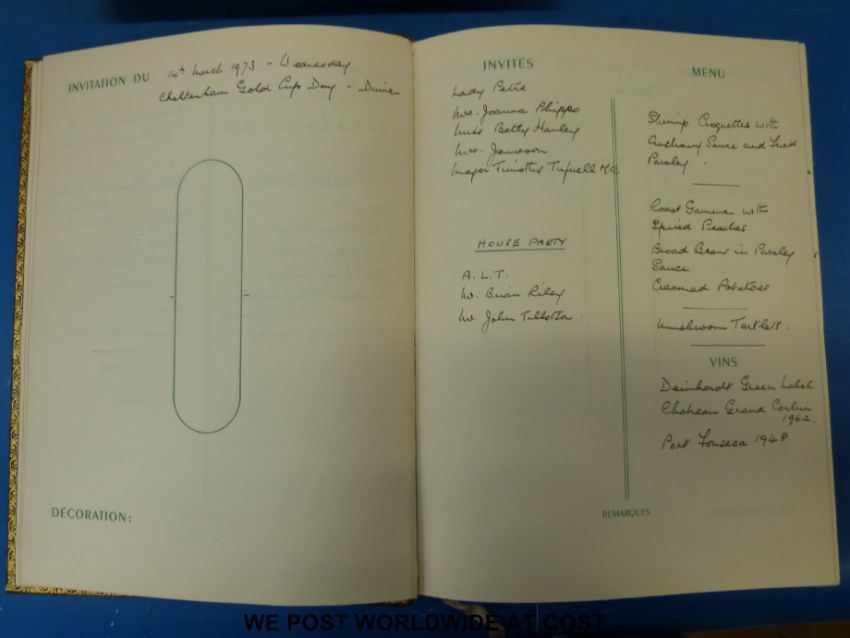 INVITATION DU 14th March 1973 - Wednesday
Cheltenham Gold Cup Day - Dinner
DÉCORATION:
INVITÉS
Lady Petre
Mrs. Joanna Phipps
Miss Betty Hanley
Mrs. Jameson
Major Timothy
HOUSE PARTY
A.L.T.
Mr. Brian Riley
Mr. John Tillotson
MENU
Shrimp Croquettes with
Anchovy Sauce and Fried
Parsley.
Roast Gammon with
Spiced Peaches
Broad Beans in Parsley
Sauce
Creamed Potatoes
Mushroom Tartlets.
VINS
Deinhardt Green Label
Chateau Grand Corbin
1962.
Port Fonseca 1948
REMARQUES
WE POST WORLDWIDE AT COST